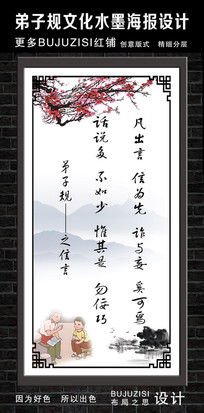 弟子规文化水墨海报设计
更多BUJUZISI红铺 创意版式 精细分层
凡出言 信为先 诈与妄 奚可焉
话说多 不如少 惟其是 勿佞巧
弟子规——之信言
因为好色 所以出色
BUJUZISI
布局之思
设计